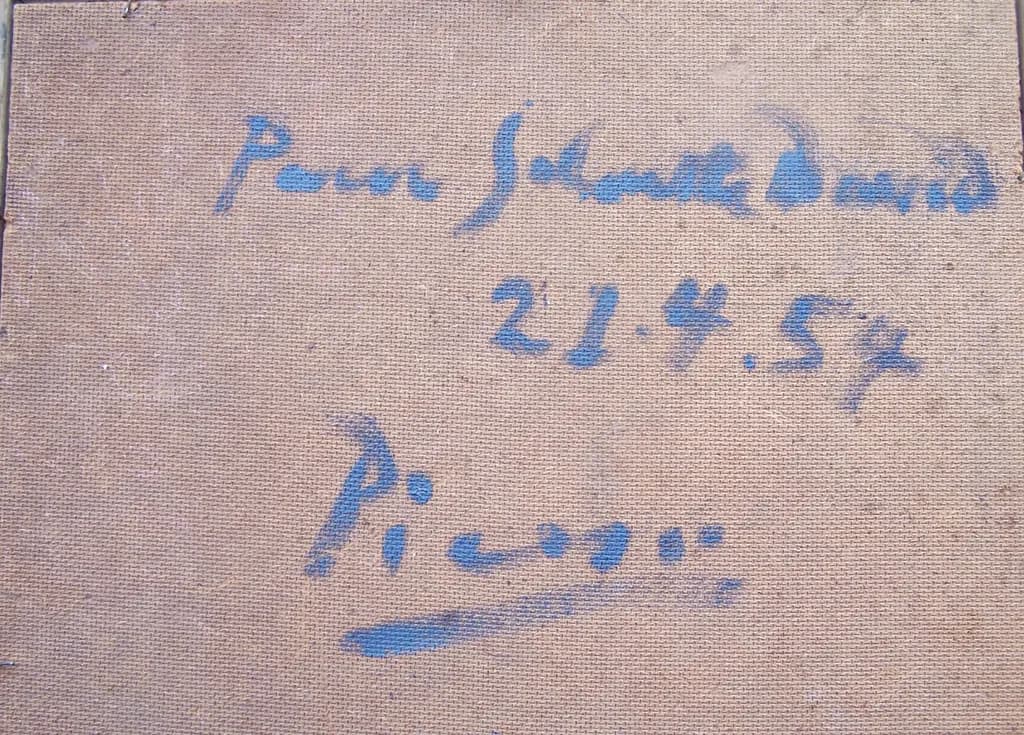 Pour Sylvette David
21.4.54
Picasso